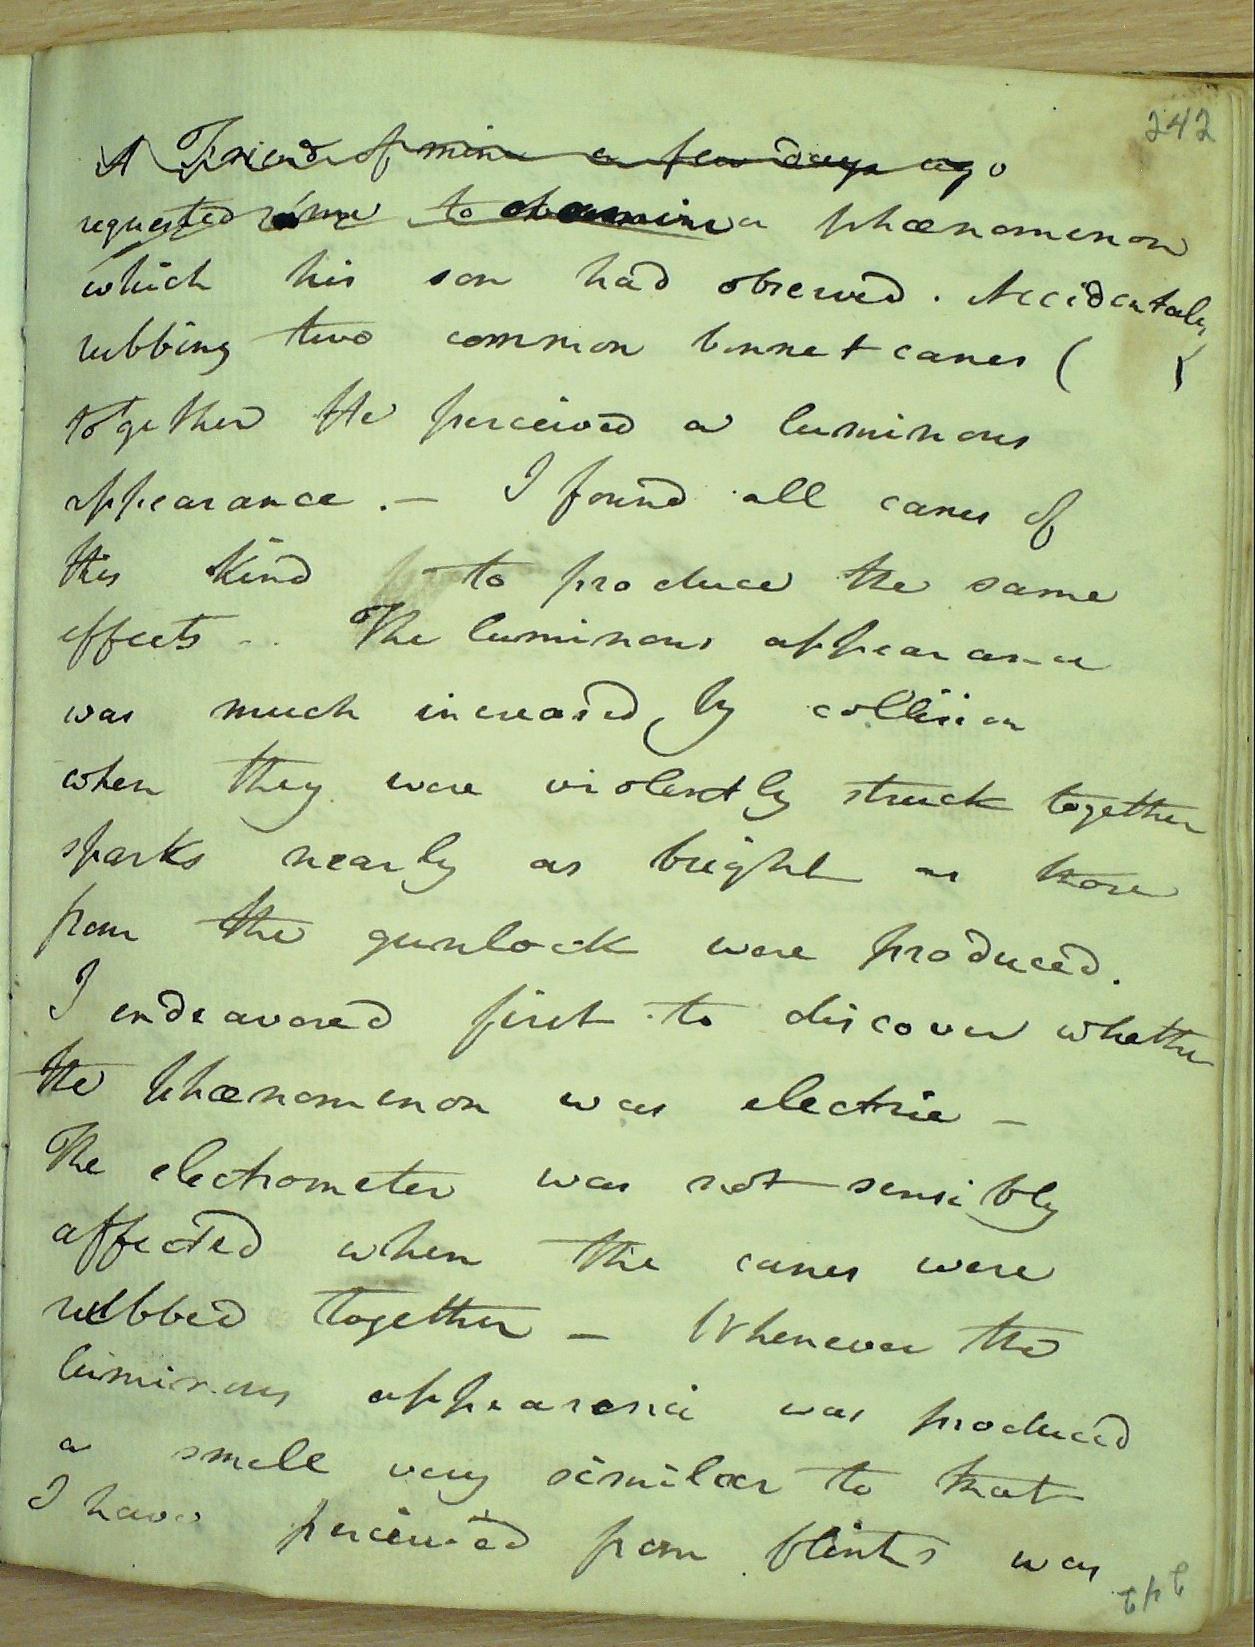 242
A Friend of mine a few days ago
requested me to examine a phænomenon
which his son had observed. Accidentaly
rubbing two common bonnet canes ( )
together He perceived a luminous
appearance. - I found all canes of
this Kind to produce the same
effects - The luminous appearance
was much increased by collision
when they were violently struck together
sparks nearly as bright as those
from the gunlock were produced.
I endeavored first to discover whether
the phænomenon was electric -
The electrometer was not sensibly
affected when the canes were
rubbed together - Whenever the
luminous appearance was produced
a smell very similar to that
I have perceived from flints was